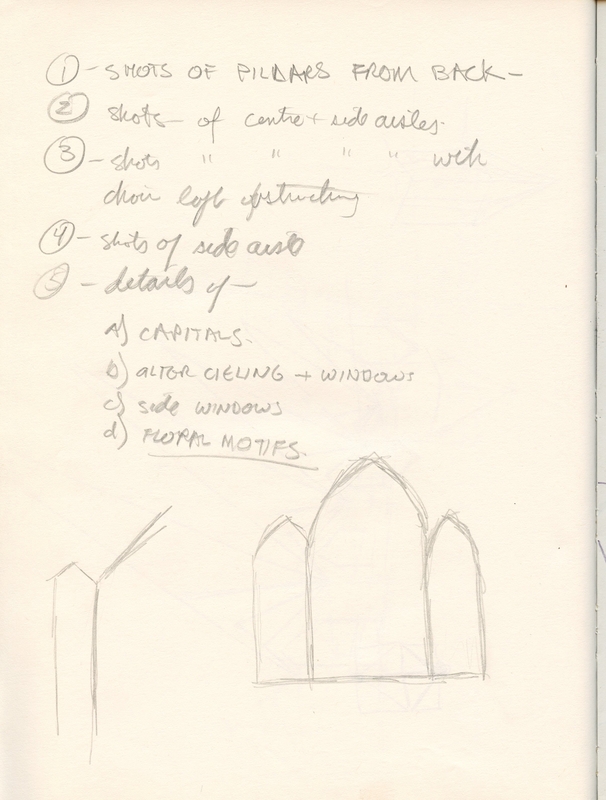 ① - SHOTS OF PILLARS FROM BACK -
② shots - of centre + side aisles.
③ - shots " " " " with
choir loft obstructing
④ - shots of side aisle
⑤ - details of -
a) CAPITALS.
b) ALTER CIELING + WINDOWS
c) side WINDOWS
d) FLORAL MOTIFS.